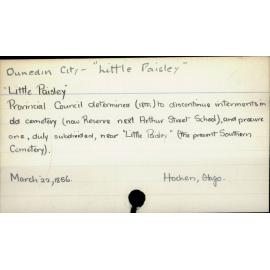 Dunedin City - "Little Paisley"
"Little Paisley"
Provincial Council determines (1857) to discontinue interments in
old cemetery (now Reserve next Arthur Street School), and procure
one, duly subdivided, near "Little Paisley" (the present Southern
Cemetery).
March 22, 1856.
Hocken, Otago.